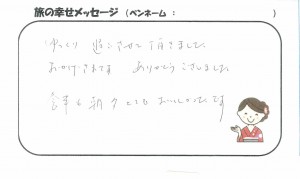 旅の幸せメッセージ (ペンネーム : )
ゆっくり 過ごさせて頂きました
おかげさまです ありがとうございました
食事も朝夕とてもおいしかったです